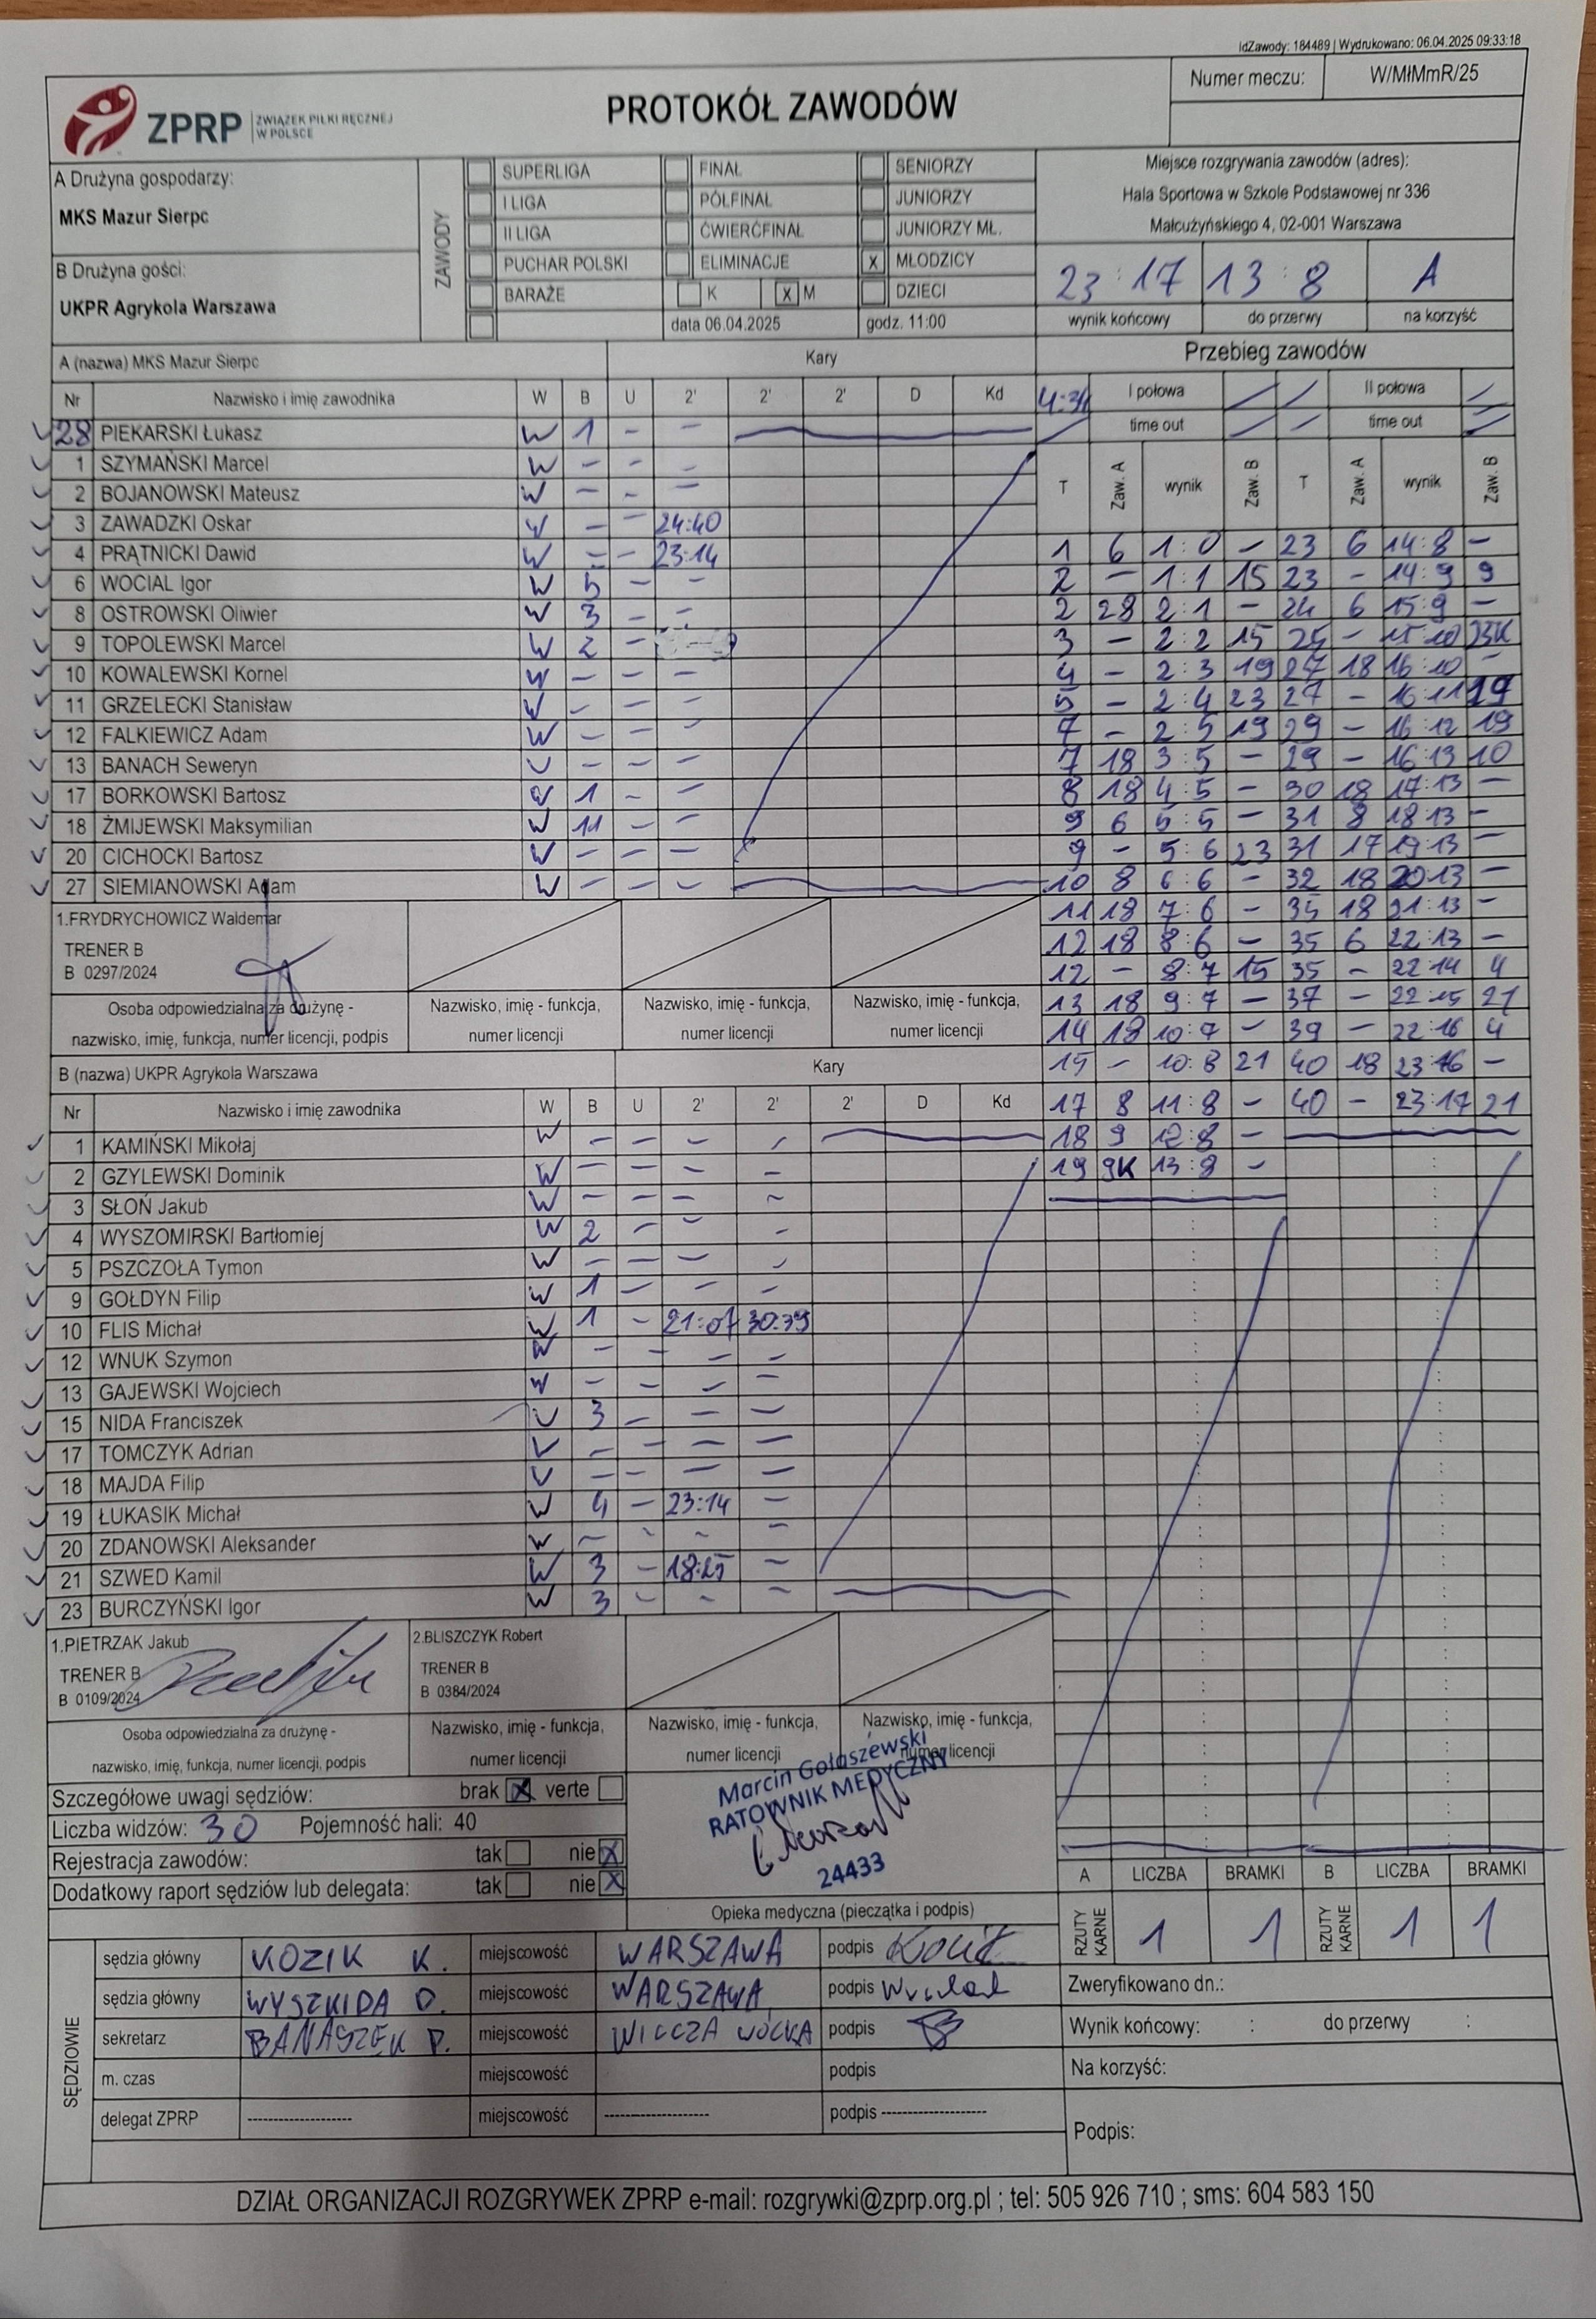 IdZawody: 184489 | Wydrukowano: 06.04.2025 09:33:18
ZPRP ZWIĄZEK PIŁKI RĘCZNEJ W POLSCE
PROTOKÓŁ ZAWODÓW
Numer meczu: W/MłMmR/25
A Drużyna gospodarzy:
MKS Mazur Sierpc
B Drużyna gości:
UKPR Agrykola Warszawa
ZAWODY
SUPERLIGA FINAŁ SENIORZY
I LIGA PÓŁFINAŁ JUNIORZY
II LIGA ĆWIERĆFINAŁ JUNIORZY MŁ.
PUCHAR POLSKI ELIMINACJE X MŁODZICY
BARAŻE K X M DZIECI
data 06.04.2025 godz. 11:00
Miejsce rozgrywania zawodów (adres):
Hala Sportowa w Szkole Podstawowej nr 336
Małcużyńskiego 4, 02-001 Warszawa
23:17 13:8 A
wynik końcowy do przerwy na korzyść
A (nazwa) MKS Mazur Sierpc Kary
Nr Nazwisko i imię zawodnika W B U 2' 2' 2' D Kd
28 PIEKARSKI Łukasz W 1 - -
1 SZYMAŃSKI Marcel W - - -
2 BOJANOWSKI Mateusz W - - -
3 ZAWADZKI Oskar W - - 24:40
4 PRĄTNICKI Dawid W - - 23:14
6 WOCIAL Igor W 5 - -
8 OSTROWSKI Oliwier W 3 - -
9 TOPOLEWSKI Marcel W 2 -
10 KOWALEWSKI Kornel W - - -
11 GRZELECKI Stanisław W - - -
12 FALKIEWICZ Adam W - - -
13 BANACH Seweryn W - - -
17 BORKOWSKI Bartosz W 1 - -
18 ŻMIJEWSKI Maksymilian W 11 - -
20 CICHOCKI Bartosz W - - -
27 SIEMIANOWSKI Adam W - - -
1.FRYDRYCHOWICZ Waldemar
TRENER B
B 0297/2024
Osoba odpowiedzialna za drużynę - nazwisko, imię, funkcja, numer licencji, podpis
Nazwisko, imię - funkcja, numer licencji
Nazwisko, imię - funkcja, numer licencji
Nazwisko, imię - funkcja, numer licencji
B (nazwa) UKPR Agrykola Warszawa Kary
Nr Nazwisko i imię zawodnika W B U 2' 2' 2' D Kd
1 KAMIŃSKI Mikołaj W - - - -
2 GZYLEWSKI Dominik W - - - -
3 SŁOŃ Jakub W - - - -
4 WYSZOMIRSKI Bartłomiej W 2 - - -
5 PSZCZOŁA Tymon W - - - -
9 GOŁDYN Filip W 1 - - -
10 FLIS Michał W 1 - 21:07 30:39
12 WNUK Szymon W - - - -
13 GAJEWSKI Wojciech W - - - -
15 NIDA Franciszek W 3 - - -
17 TOMCZYK Adrian W - - - -
18 MAJDA Filip W - - - -
19 ŁUKASIK Michał W 4 - 23:14 -
20 ZDANOWSKI Aleksander W - - - -
21 SZWED Kamil W 3 - 18:25 -
23 BURCZYŃSKI Igor W 3 - - -
1.PIETRZAK Jakub
TRENER B
B 0109/2024
2.BLISZCZYK Robert
TRENER B
B 0384/2024
Osoba odpowiedzialna za drużynę - nazwisko, imię, funkcja, numer licencji, podpis
Nazwisko, imię - funkcja, numer licencji
Nazwisko, imię - funkcja, numer licencji
Nazwisko, imię - funkcja, numer licencji
Przebieg zawodów
I połowa II połowa
time out time out
T Zaw. A wynik Zaw. B T Zaw. A wynik Zaw. B
1 6 1:0 - 23 6 14:8 -
2 - 1:1 15 23 - 14:9 9
2 28 2:1 - 24 6 15:9 -
3 - 2:2 15 25 - 15:10 23K
4 - 2:3 19 27 18 16:10 -
5 - 2:4 23 27 - 16:11 19
7 - 2:5 19 29 - 16:12 19
7 18 3:5 - 29 - 16:13 10
8 18 4:5 - 30 18 17:13 -
9 6 5:5 - 31 8 18:13 -
9 - 5:6 23 31 17 19:13 -
10 8 6:6 - 32 18 20:13 -
11 18 7:6 - 35 18 21:13 -
12 18 8:6 - 35 6 22:13 -
12 - 8:7 15 35 - 22:14 4
13 18 9:7 - 37 - 22:15 21
14 18 10:7 - 39 - 22:16 4
15 - 10:8 21 40 18 23:16 -
17 8 11:8 - 40 - 23:17 21
18 9 12:8 -
19 9K 13:8 -
Szczegółowe uwagi sędziów: brak X verte
Liczba widzów: 30 Pojemność hali: 40
Rejestracja zawodów: tak nie X
Dodatkowy raport sędziów lub delegata: tak nie X
Marcin Gołaszewski
RATOWNIK MEDYCZNY
24433
Opieka medyczna (pieczątka i podpis)
A LICZBA BRAMKI B LICZBA BRAMKI
RZUTY KARNE 1 1 RZUTY KARNE 1 1
SĘDZIOWIE
sędzia główny KOZIK K. miejscowość WARSZAWA podpis
sędzia główny WYSZKIDA D. miejscowość WARSZAWA podpis
sekretarz BANASZEK P. miejscowość podpis
m. czas miejscowość podpis
delegat ZPRP -------------------- miejscowość -------------------- podpis --------------------
Zweryfikowano dn.:
Wynik końcowy: : do przerwy :
Na korzyść:
Podpis:
DZIAŁ ORGANIZACJI ROZGRYWEK ZPRP e-mail: rozgrywki@zprp.org.pl ; tel: 505 926 710 ; sms: 604 583 150